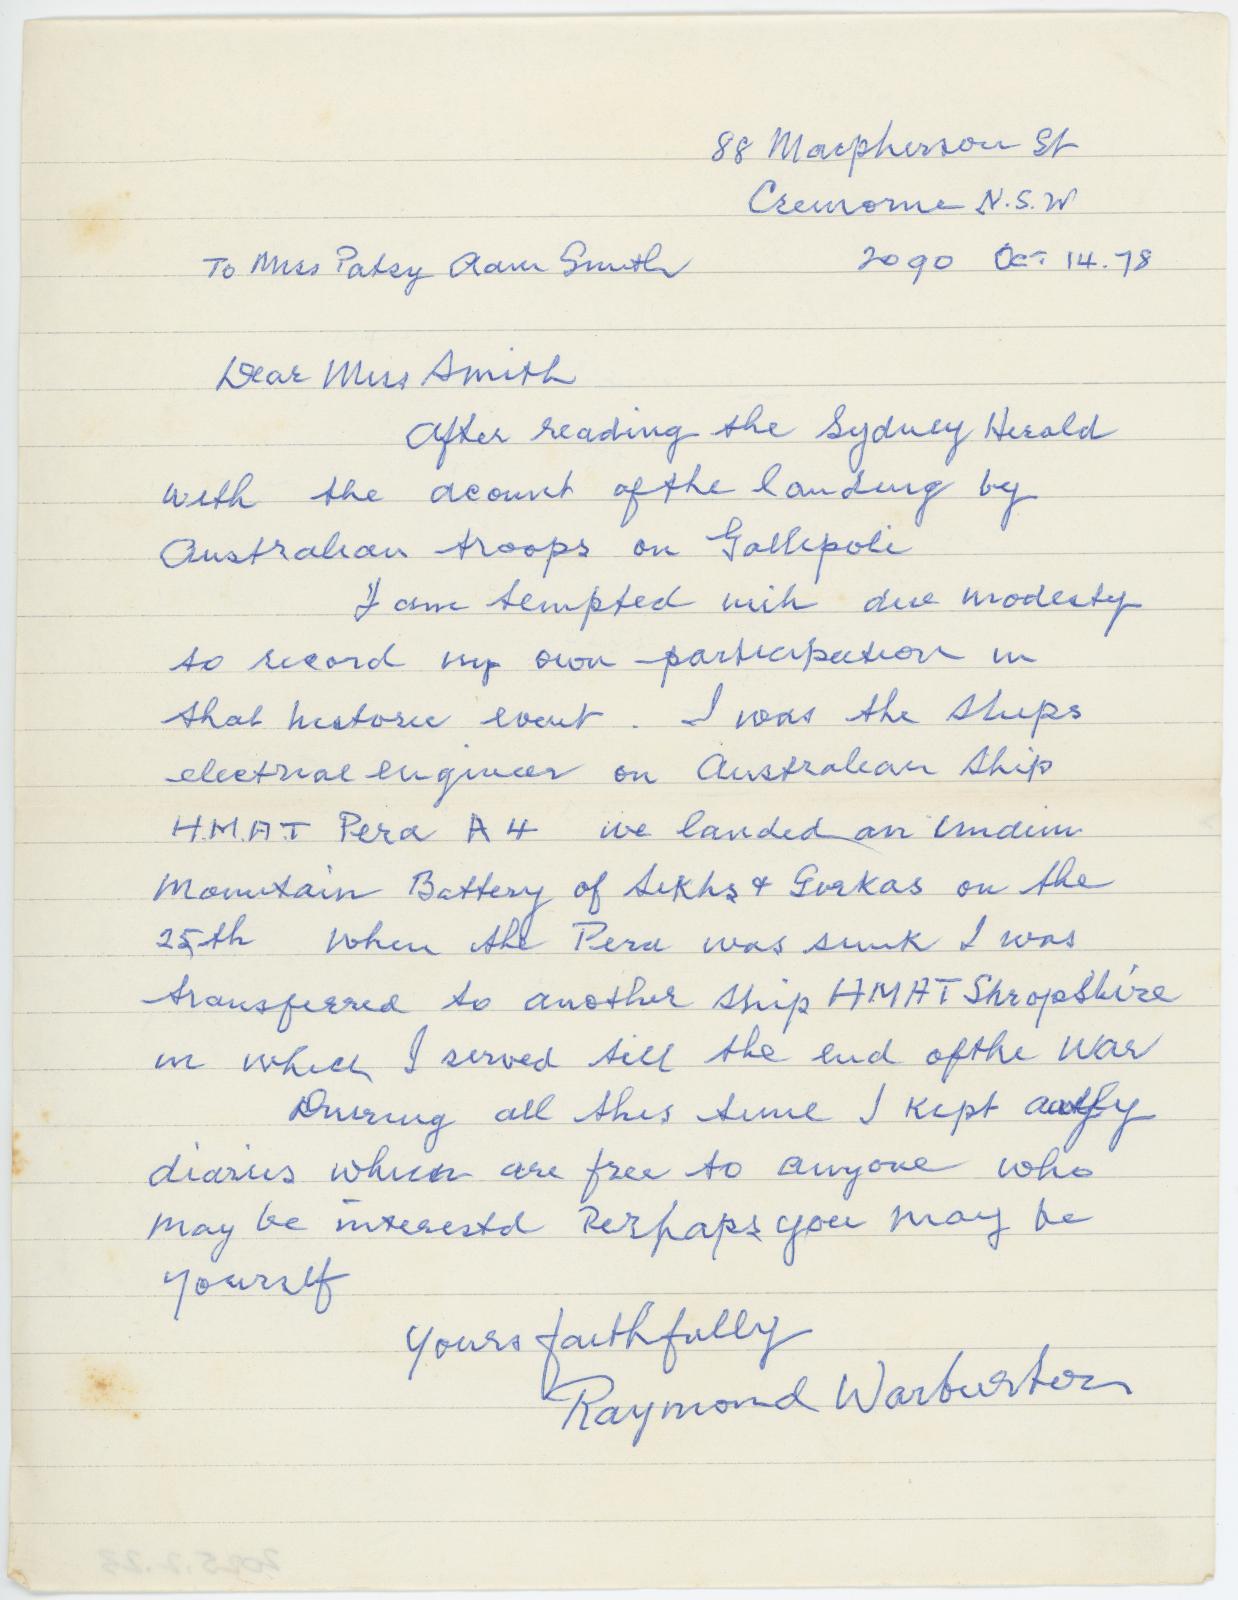 88 Macpherson St
Cremorne N.S.W
To Miss Patsy Adam Smith 2090 Oct 14.78
Dear Miss Smith
After reading the Sydney Herald
with the acount of the landing by
Australian troops on Gallipoli
I am tempted with due modesty
to record my own participation in
that historic event. I was the ships
electrical engineer on Australian Ship
H.M.A.T Pera A4 we landed an Indian
Mountain Battery of Sikhs & Gurkas on the
25th when the Pera was sunk I was
transferred to another ship HMAT Shropshire
in which I served till the end of the War
During all this time I kept
diaries which are free to anyone who
may be interestd Perhaps you may be
yourself
Yours faithfully
Raymond Warburton
2025.2.23